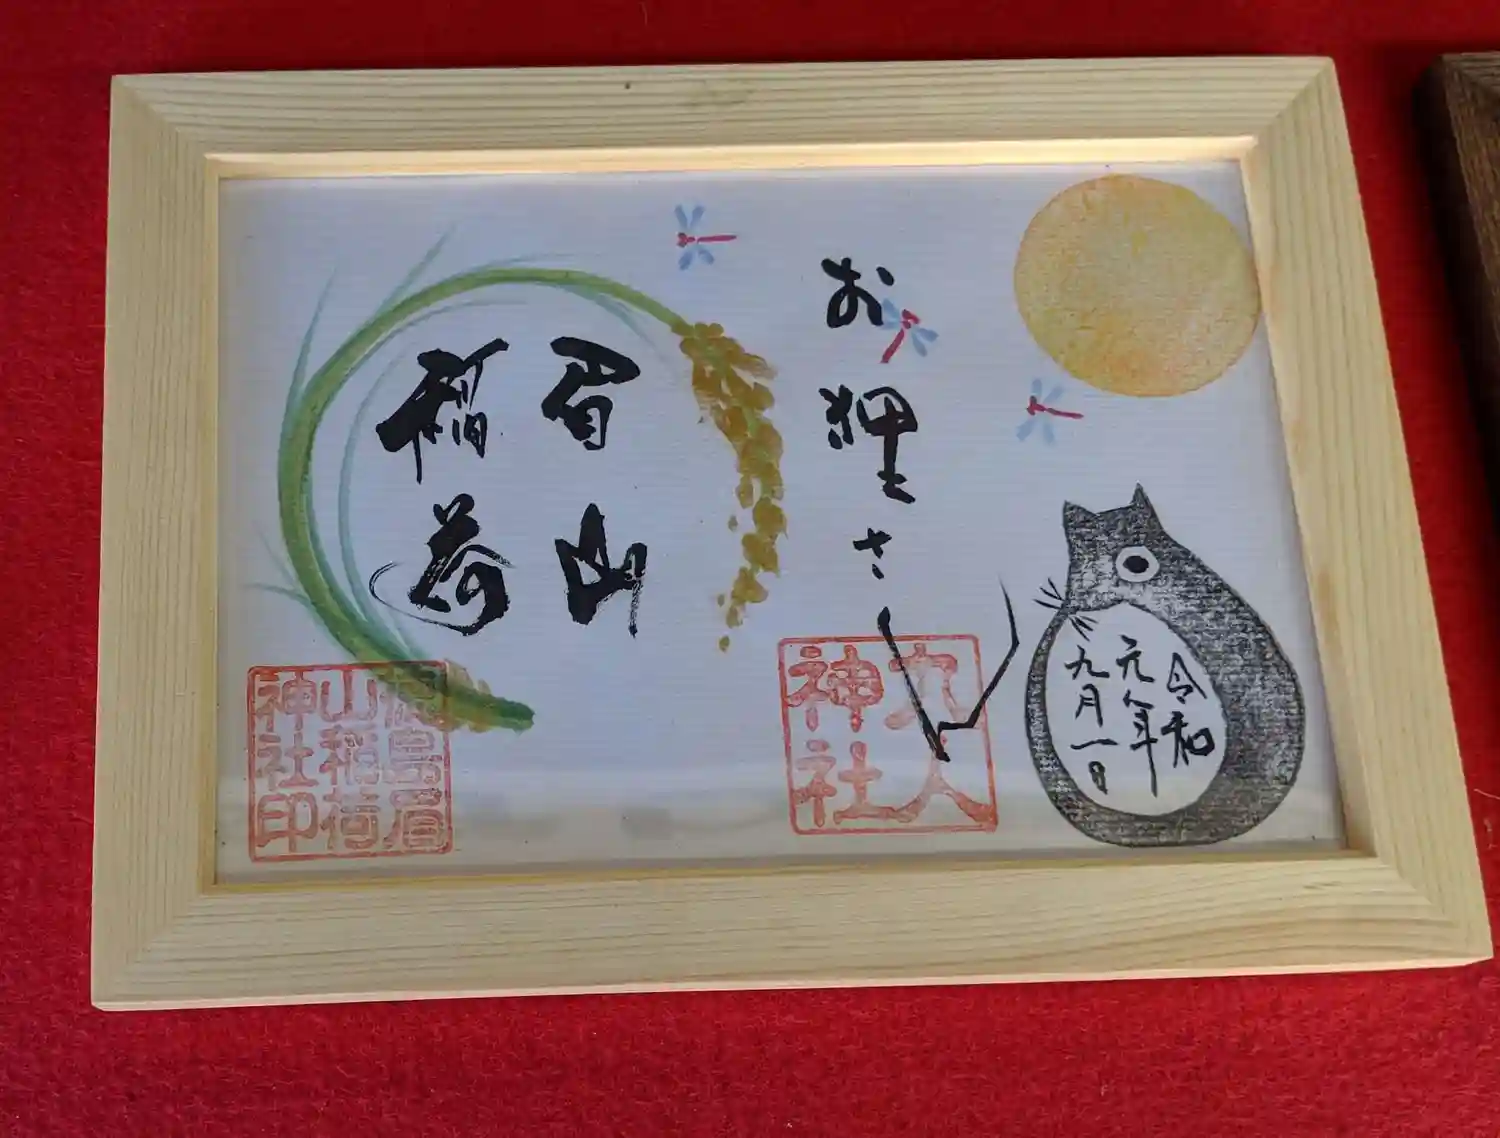 お狸さん
眉山
稲荷
令和
元年
九月一日
人
神社
徳島眉
山稲荷
神社印